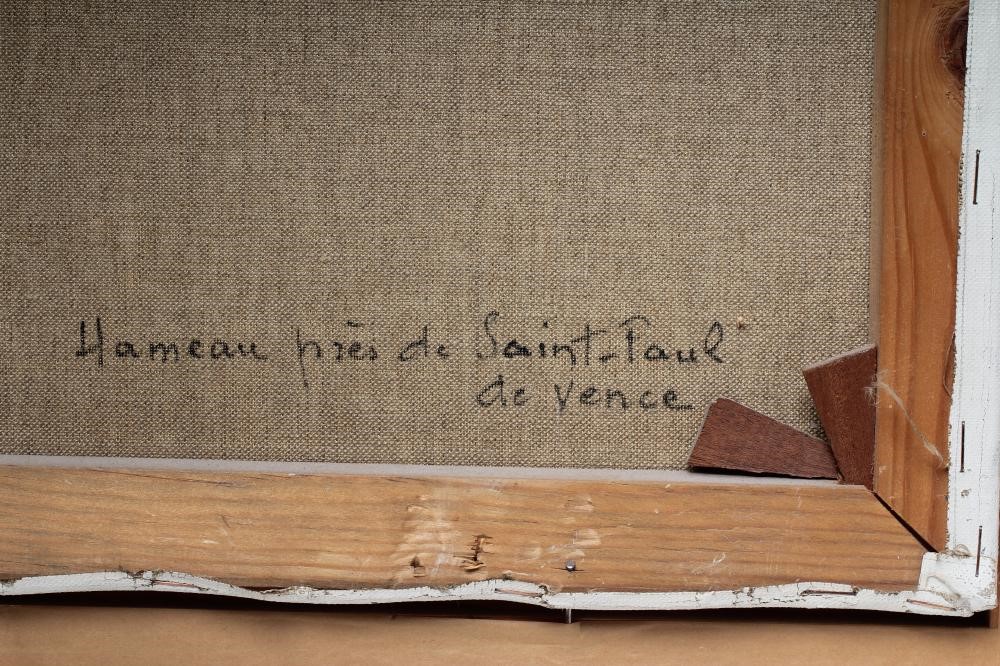 Hameau près de Saint-Paul
de Vence